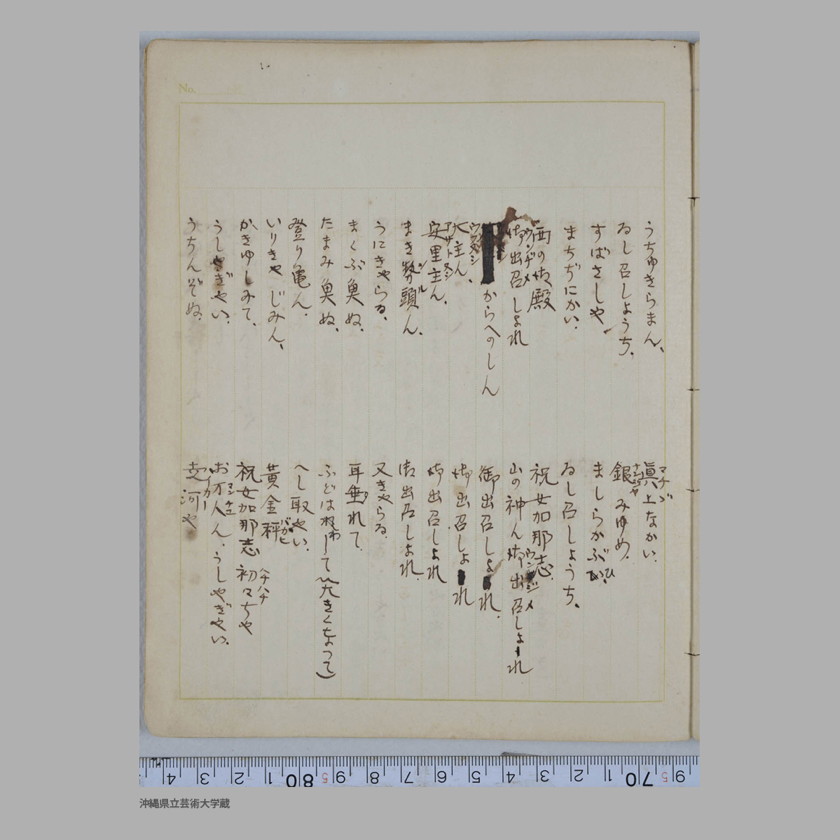 うちゆきらまん、
ゐし召しようち、
すばさしや、
まちぢにかい、
西の大殿
御出召しよれ
からへのしん
水主ん、
安里主ん、
まき裂頭ん、
うにきやらる、
まくぶ魚ぬ、
たまみ魚ぬ、
登り亀ん、
いりきやじみん、
かきゆしみて、
うしやぎやい、
うちんぞぬ、
眞上なかい、
銀みゆぬ、
ましらかぶい、
ゐし召しようち、
祝女加那志、
山の神ん御出召しよれ
御出召しよれ、
御出召しよれ
御出召しよれ
御出召しよれ、
又きやらる、
耳垂れて、
ふどはねーして(大きくなって)
へし取やい、
黄金秤
祝女加那志初々ちや
お万人ん、うしやぎやい、
河や
No.
沖縄県立芸術大学蔵